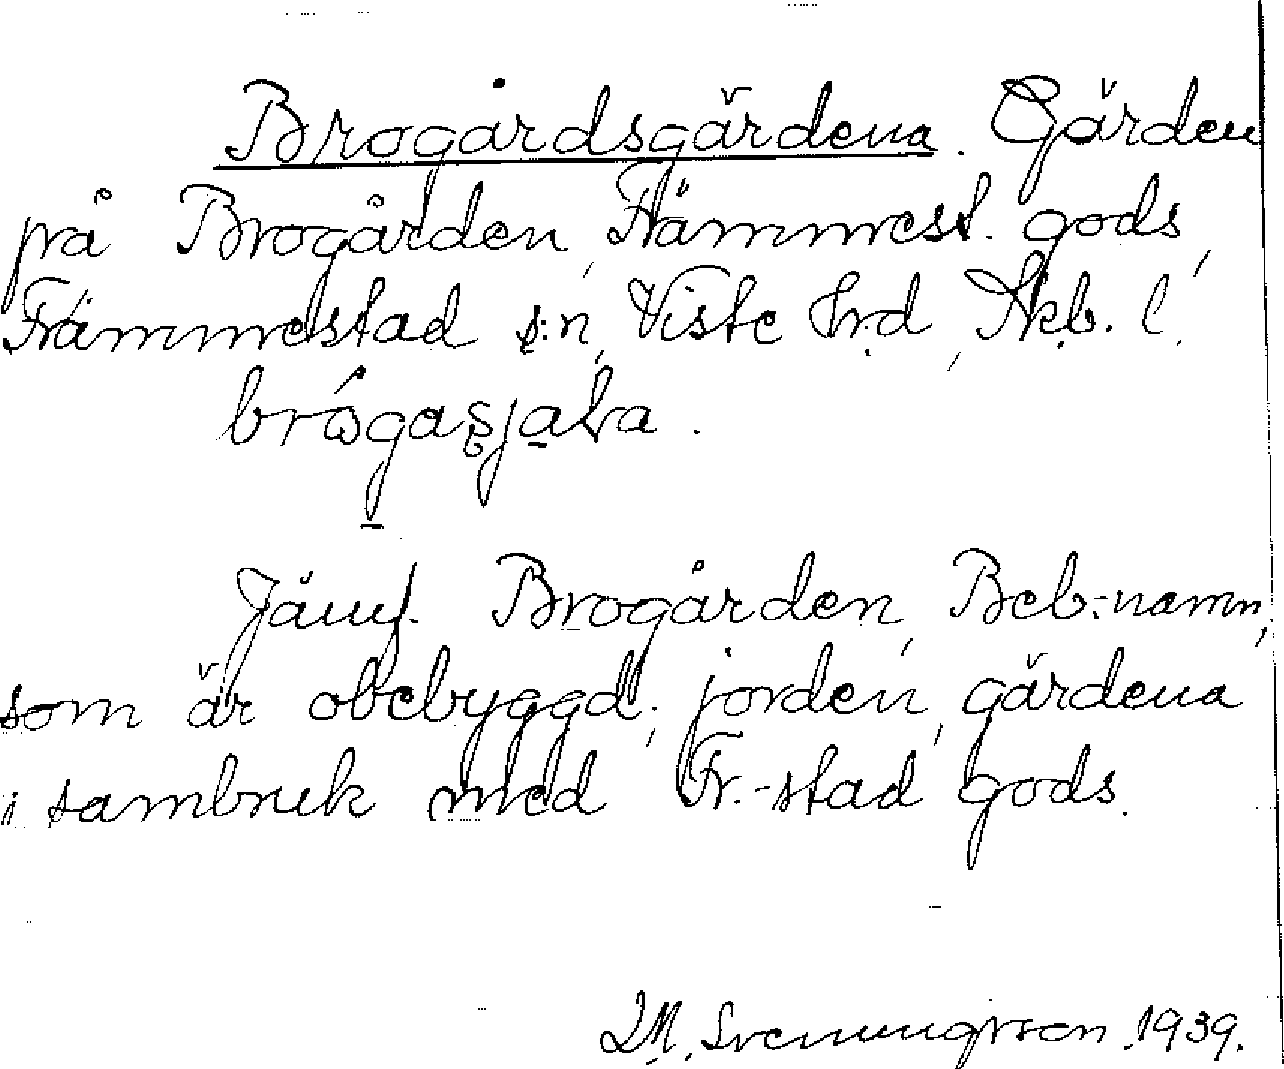 Brogårdsgärdena. Gärden
på Brogården, Främmest. gods,
Främmestad s:n, Viste Hrd, Skb. l.
Jämf. Brogården, Beb.-namn,
som är obebyggd; jorden, gärdena
i sambruk med Fr.-stad gods.
Svenungsson 1939.